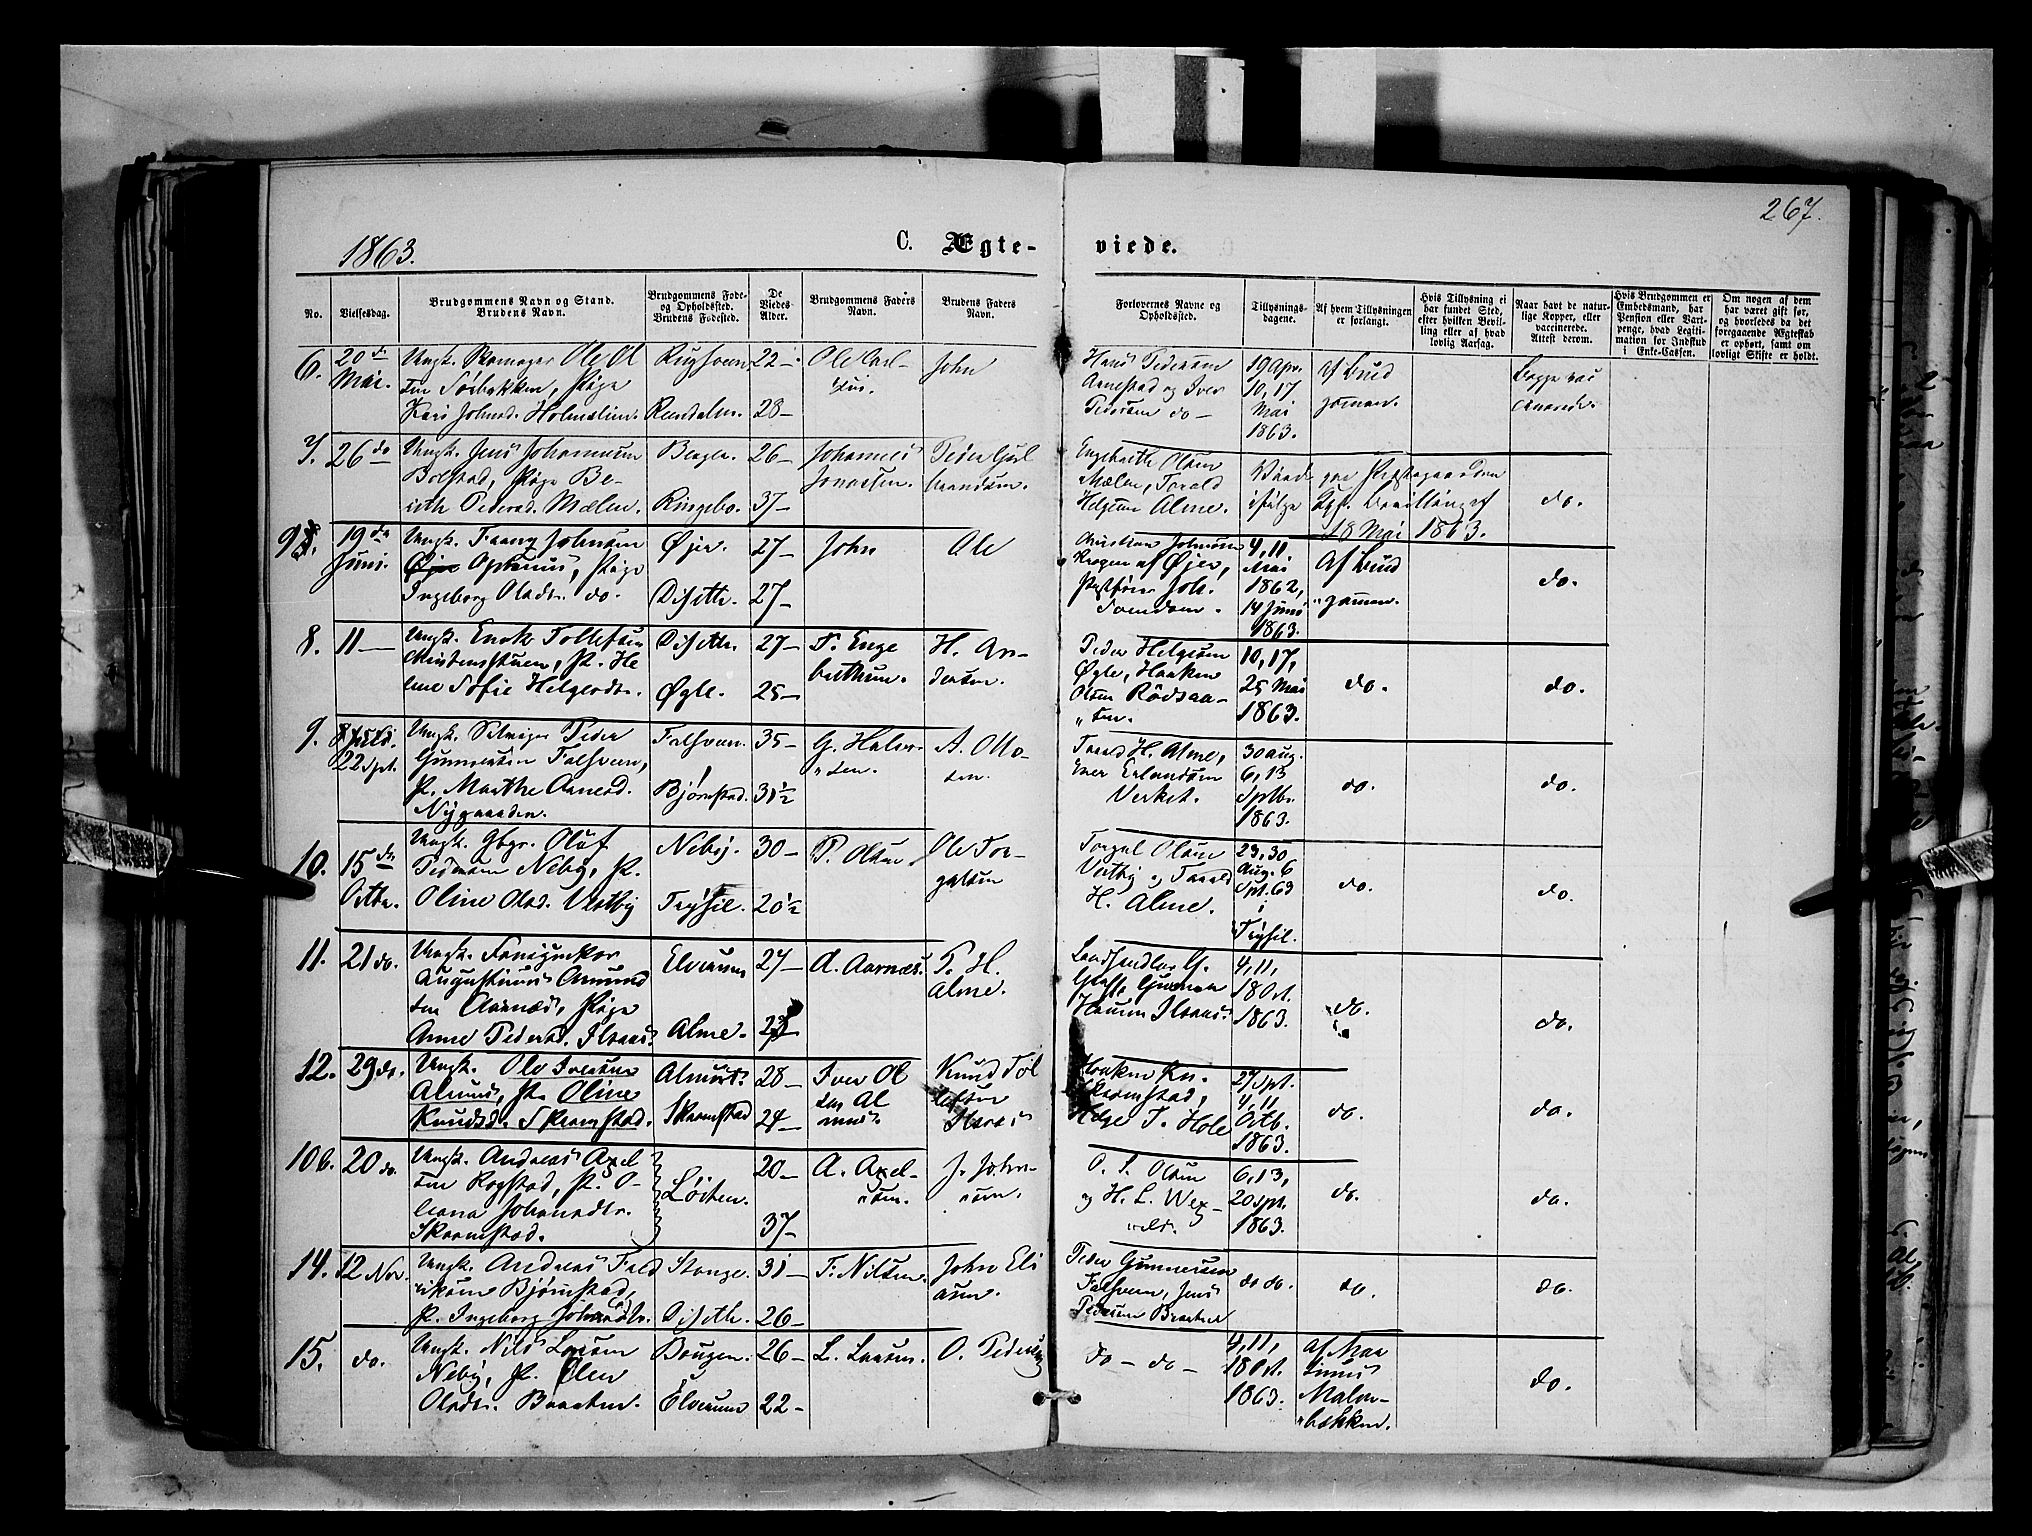 267.
1863.
C. Ægte-
viede.
No.
Vielsesdag.
Brudgommens Navn og Stand.
Brudens Navn.
Brudgommens Føde-
og Opholdssted.
Brudens Fødested.
De
Viedes
Alder.
Brudgommens Faders
Navn.
Brudens Faders
Navn.
Forlovernes Navne og
Opholdssted.
Tillysnings-
dagene.
Af hvem Tillysningen
er forlangt.
Hvis Tillysning ei
har fundet Sted,
efter hvilken Bevil-
ling eller af hvad
lovlig Aarsag.
Naar havt de natur-
lige Kopper, eller
vaccinerede.
Attest derom.
Hvis Brudgommen er
Embedsmand, har
Pension eller Vart-
penge, hvad Legiti-
mation for Indskud
i Enke-Cassen.
Om nogen af dem
har været gift før,
og hvorledes da det
foregaaende Ægteskab
er ophørt, samt om
lovligt Skifte er holdt.
6.
20de
Mai.
Ungk. Skomager Ole Ol
sen Sorbekken, Pige
Kari Johnsd. Holmslien.
Rendalen.
22-
28-
John
Hans Pedersen
Arnestad og Iver
Pedersen do -
19 Apr.
10, 17
Mai
1863.
af Brud
gommen.
7.
26 de
Ungk. Jens Johannesen
Bolstad, Pige Be-
rithe Pedersd. Mælen.
Ringebo.
26-
37-
Johannes
Jonassen.
Peder Gul
brandsen.
Engebreth Olsen
Mælen, Torald
Helgesen Alme.
18 Mai 1863.
do.
19de
Juni.
Ungk. Johnsen
Pige
Ingeborg Olsdtr. do.
Øjer.
Disetth.
27-
27-
John
Ole
Christian Johnsen
Krogen af Øjer,
4, 11.
Mai
1862,
14 Juni
1863.
Af Brud
gommen.
do.
8.
11 -
Ungk. Enok Tollefsen
P. He
lene Sofie Helgesdtr.
Disetth.
Øgle.
27-
25-
T. Enge
brethsen.
H. An-
dersen.
Peder Helgesen
Øgle, Haaken
Olsen Rødsaa-
"sen.
10, 17,
25 Mai
1863.
do.
do.
9.
22 Spt.
Ungk. Peder
Gunnersen Falsveen,
P. Marthe Arnesd.
Nygaarden.
Falsveen.
Bjørnstad.
35-
31½
G. Halvor-
"sen.
A. Otto-
sen.
Torald H. Alme,
Iver Erlandsen
Verket.
30 aug.
6, 13
Sptbr.
1863.
do.
do.
10.
15 de
Octbr.
Ungk. Gbgr. Oluf
Pedersen Neby, P.
Oline Olsd. Vestby
Neby.
Trysil.
30-
20½
P. Olsen
Ole Tor-
galsen
Torgal Olsen
Vestby og Torald
H. Alme.
23, 30
Aug. 6
Spt. 63
i
Trysil.
do.
do.
11.
21 do.
Ungk.
Augustinus Amund
sen Aarnæs, Pige
Anne Pedersd. Ilsaas.
Elverum
Alme.
27-
A. Aarnæs.
P. H.
Alme.
Landhandler G.
4, 11,
18 Oct.
1863.
do.
do.
12.
29 do.
Ungk. Ole Iversen
Almus, P. Oline
Knudsd. Skramstad.
Skramstad
28-
24-
Iver Ol
sen Al
mus.
Knud Tol
lefsen
Haaken Kn.
Skramstad,
Helge T. Hole
27 Spt.
4, 11
Octb.
1863.
do.
do.
106.
20 do.
Ungk. Andreas Axel
sen Rogstad, P. O-
leana Johansdtr.
Skramstad.
Løiten.
20-
37-
A. Axel-
sen.
J. John-
sen.
O. S. Olsen
og H. L. Wex-
6, 13,
20 Spt.
1863.
do.
do.
14.
12 Nov.
Ungk. Andreas Fred
riksen Bjørnstad,
P. Ingeborg Johnsdtr.
Stange.
Disetth.
31-
26-
F. Nilsen.
John Eli
asen.
Peder Gunnersen
Falsveen, Jens
Pedersen Braaten
do do.
do.
do.
15.
do.
Ungk. Nils Larsen
Neby, P. Olea
Olsdtr. Braaten.
Elverum
26-
22-
L. Larsen.
O. Pedersen
do - do -
4, 11,
18 Oct.
1863.
af Maa
Malm-
"bækken.
do.